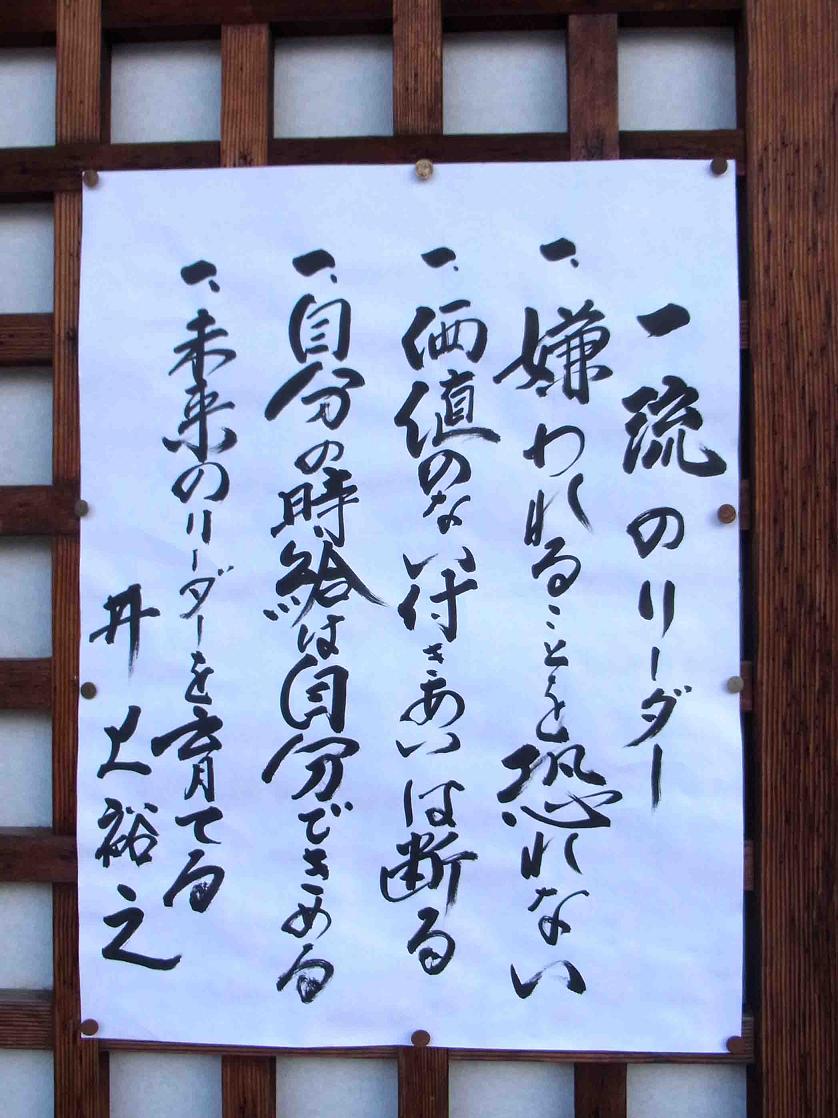 一流のリーダー
一、嫌われることを恐れない
一、価値のない付きあいは断る
一、自分の時給は自分できめる
一、未来のリーダーを育てる
井上裕之